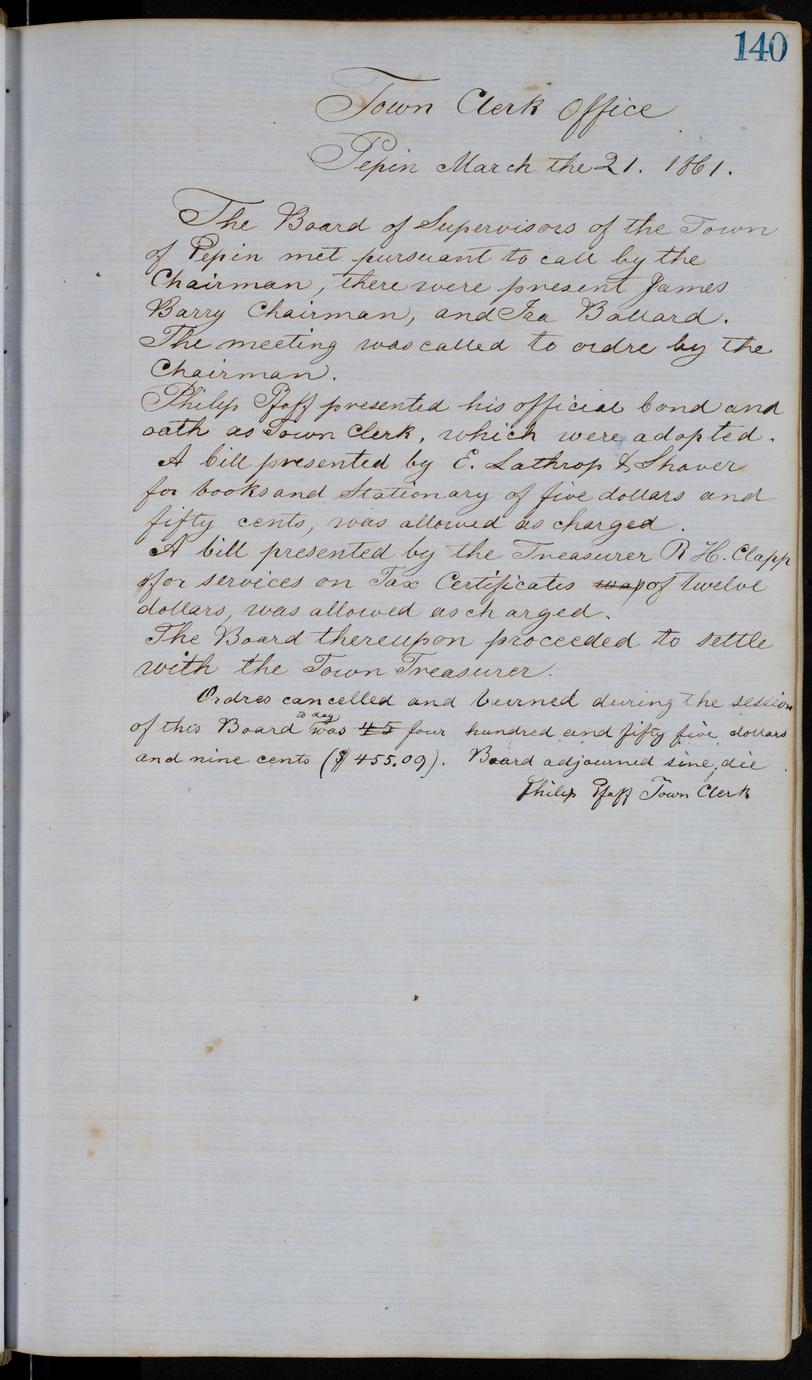 140
Town Clerk Office
Pepin March the 21. 1861.
The Board of Supervisors of the Town
of Pepin met pursuant to call by the
Chairman, there were present James
Barry Chairman, and Ira Ballard.
The meeting was called to ordre by the
Chairman.
Philip Pfaff presented his official bond and
oath as Town Clerk, which were adopted.
A bill presented by E. Lathrop & Shaver
for books and Stationary of five dollars and
fifty cents, was allowed as charged.
A bill presented by the Treasurer R H. Clapp
for services on Tax Certificates was of twelve
dollars, was allowed as charged.
The Board thereupon proceeded to settle
with the Town Treasurer.
Ordres cancelled and burned during the session
of this Board to day was 45 four hundred and fifty five dollars
and nine cents ($455.09). Board adjourned sine die
Philip Pfaff Town Clerk